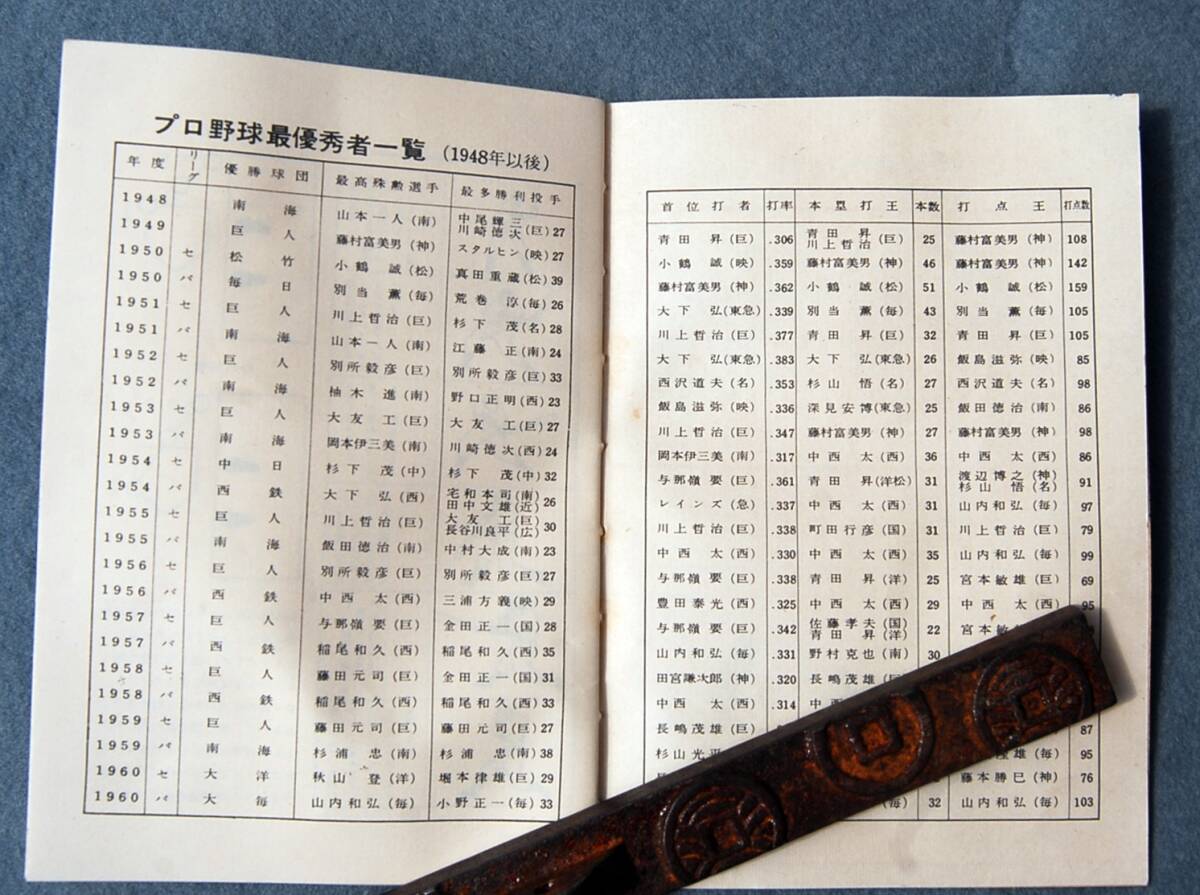 プロ野球最優秀者一覧 (1948年以後)
年度 リーグ 優勝球団 最高殊勲選手 最多勝利投手
1948 南海 山本一人(南) 中尾輝三 川崎徳次(巨)27
1949 巨人 藤村富美男(神) スタルヒン(映)27
1950 セ 松竹 小鶴誠(松) 真田重蔵(松)39
1950 パ 毎日 別当薫(毎) 荒巻淳(毎)26
1951 セ 巨人 川上哲治(巨) 杉下茂(名)28
1951 パ 南海 山本一人(南) 江藤正(南)24
1952 セ 巨人 別所毅彦(巨) 別所毅彦(巨)33
1952 パ 南海 柚木進(南) 野口正明(西)23
1953 セ 巨人 大友工(巨) 大友工(巨)27
1953 パ 南海 岡本伊三美(南) 川崎徳次(西)24
1954 セ 中日 杉下茂(中) 杉下茂(中)32
1954 パ 西鉄 大下弘(西) 宅和本司(南) 田中文雄(近)26
1955 セ 巨人 川上哲治(巨) 大友工(巨) 長谷川良平(広)30
1955 パ 南海 飯田徳治(南) 中村大成(南)23
1956 セ 巨人 別所毅彦(巨) 別所毅彦(巨)27
1956 パ 西鉄 中西太(西) 三浦方義(映)29
1957 セ 巨人 与那嶺要(巨) 金田正一(国)28
1957 パ 西鉄 稲尾和久(西) 稲尾和久(西)35
1958 セ 巨人 藤田元司(巨) 金田正一(国)31
1958 パ 西鉄 稲尾和久(西) 稲尾和久(西)33
1959 セ 巨人 藤田元司(巨) 藤田元司(巨)27
1959 パ 南海 杉浦忠(南) 杉浦忠(南)38
1960 セ 大洋 秋山登(洋) 堀本律雄(巨)29
1960 パ 大毎 山内和弘(毎) 小野正一(毎)33
首位打者 打率 本塁打王 本数 打点王 打点数
青田昇(巨) .306 青田昇 川上哲治(巨) 25 藤村富美男(神) 108
小鶴誠(映) .359 藤村富美男(神) 46 藤村富美男(神) 142
藤村富美男(神) .362 小鶴誠(松) 51 小鶴誠(松) 159
大下弘(東急) .339 別当薫(毎) 43 別当薫(毎) 105
川上哲治(巨) .377 青田昇(巨) 32 青田昇(巨) 105
大下弘(東急) .383 大下弘(東急) 26 飯島滋弥(映) 85
西沢道夫(名) .353 杉山悟(名) 27 西沢道夫(名) 98
飯島滋弥(映) .336 深見安博(東急) 25 飯田徳治(南) 86
川上哲治(巨) .347 藤村富美男(神) 27 藤村富美男(神) 98
岡本伊三美(南) .317 中西太(西) 36 中西太(西) 86
与那嶺要(巨) .361 青田昇(洋松) 31 渡辺博之(神) 杉山悟(名) 91
レインズ(急) .337 中西太(西) 31 山内和弘(毎) 97
川上哲治(巨) .338 町田行彦(国) 31 川上哲治(巨) 79
中西太(西) .330 中西太(西) 35 山内和弘(毎) 99
与那嶺要(巨) .338 青田昇(洋) 25 宮本敏雄(巨) 69
豊田泰光(西) .325 中西太(西) 29 中西太(西) 95
与那嶺要(巨) .342 佐藤孝夫(国) 青田昇(洋) 22 宮本敏
山内和弘(毎) .331 野村克也(南) 30
田宮謙次郎(神) .320 長嶋茂雄(巨
中西太(西) .314 中
長嶋茂雄(巨) 87
杉山光平 雄(毎) 95
藤本勝巳(神) 76
(毎) 32 山内和弘(毎) 103